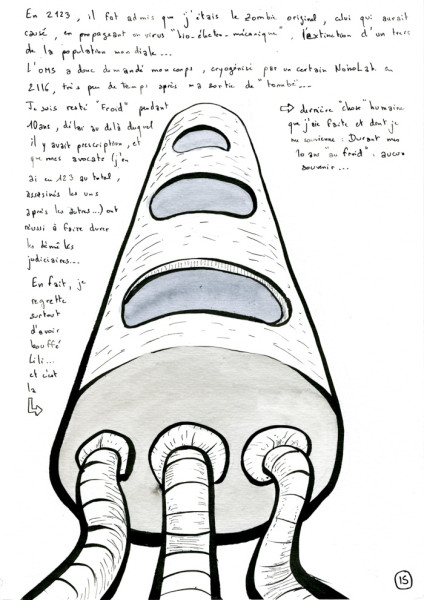 En 2123, il fut admis que j'étais le Zombie original, celui qui aurait
causé, en propageant un virus "bio-électro-mécanique", l'extinction d'un tiers
de la population mondiale...
L'OMS a donc demandé mon corps, cryogénisé par un certain NanoLab en
2116, très peu de temps après ma sortie de "tombe"...
Je suis resté "Froid" pendant
10 ans, délai au delà duquel
il y avait prescription, et
que mes avocats (j'en
ai eu 123 au total,
assasinés les uns
après les autres...) ont
réussi à faire durer
les démêlés
judiciaires...
En fait, je
regrette
surtout
d'avoir
bouffé
Lili...
et c'est
là
⇨ dernière "chose" humaine
que j'aie faite et dont je
me souvienne : Durant mes
10 ans "au froid" : aucun
souvenir...
15